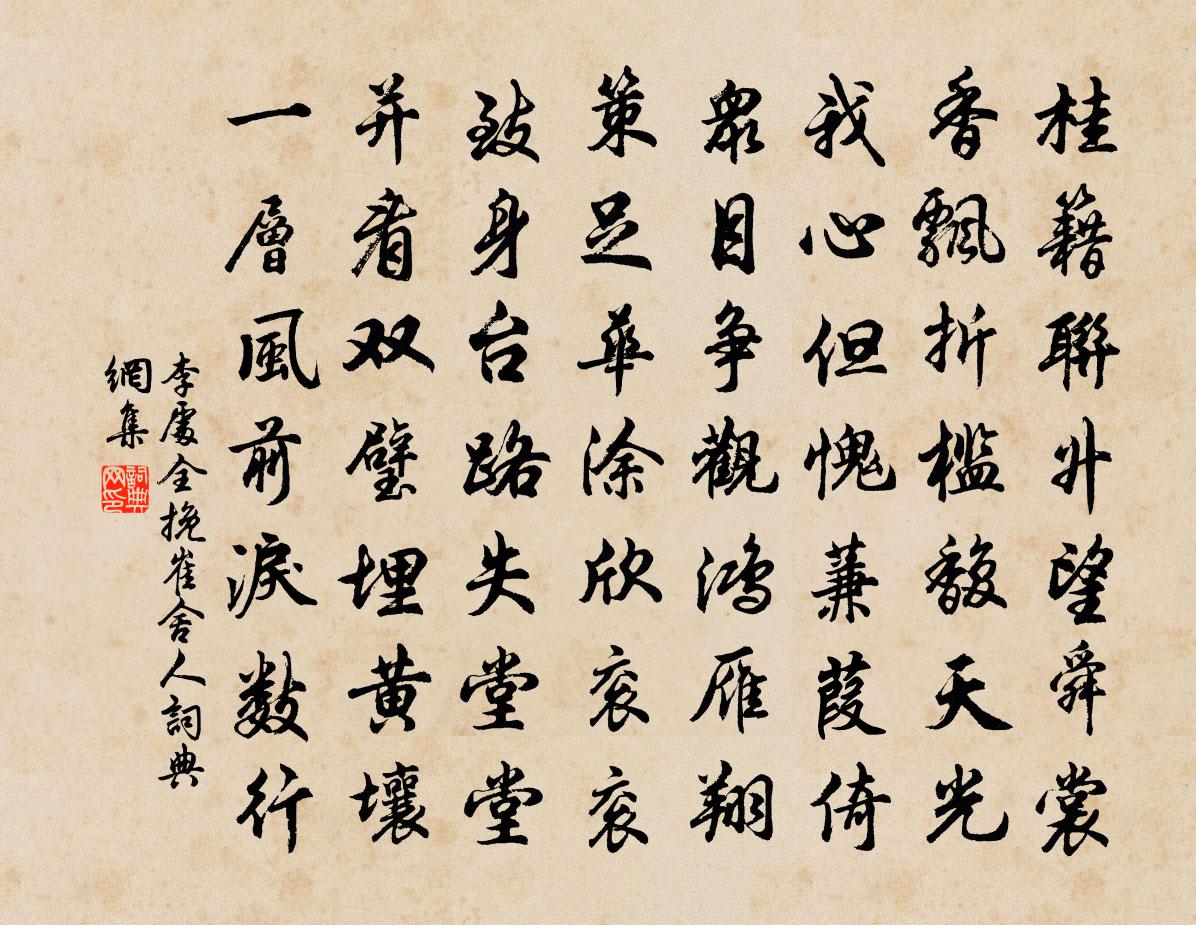 桂籍聯升望舜裳
香飄折檻馥天光
我心但愧蒹葭倚
眾目争觀鴻雁翔
策足華涂欣衮衮
致身台路失堂堂
并看双璧埋黃壤
一層風前淚數行
李處全挽崔舍人詞典
網集
詞典网印